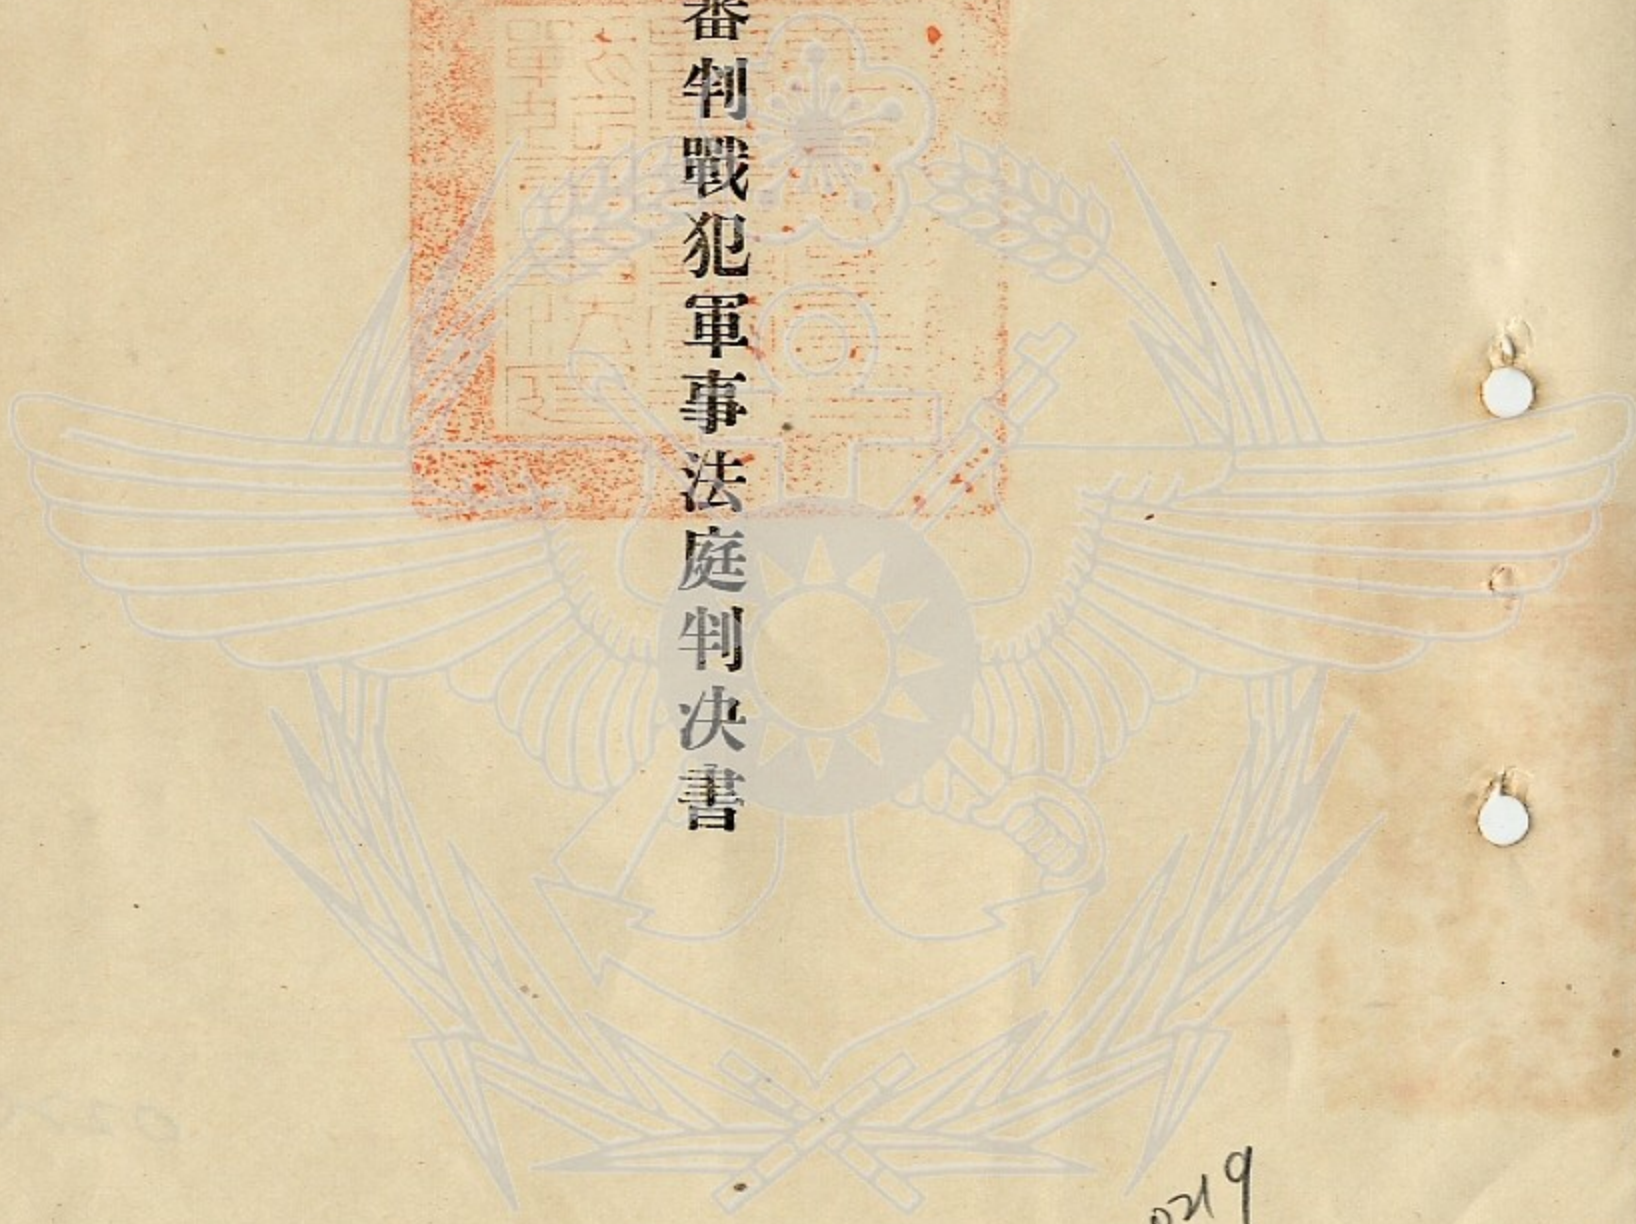 審判戰犯軍事法庭判決書
0219